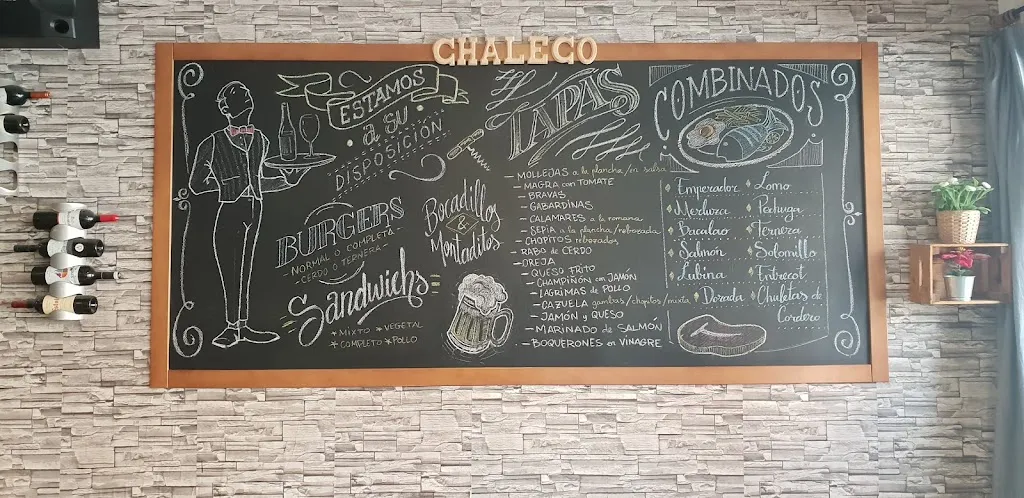 CHALECO
ESTAMOS
a SU
DISPOSICIÓN
BURGERS
NORMAL O COMPLETA
- CERDO O TERNERA -
Sandwichs
* MIXTO * VEGETAL
* COMPLETO * POLLO
Bocadillos
&
Montaditos
TAPAS
- MOLLEJAS a la plancha/en salsa
- MAGRA con TOMATE
- BRAVAS
- GABARDINAS
- CALAMARES a la romana
- SEPIA a la plancha/rebozada
- CHOPITOS rebozados
- RABO de CERDO
- OREJA
- QUESO FRITO
- CHAMPIÑÓN con JAMÓN
- LÁGRIMAS de POLLO
- CAZUELA gambas/chopitos/mixta
- JAMÓN y QUESO
- MARINADO de SALMÓN
- BOQUERONES en VINAGRE
COMBINADOS
Emperador
Merluza
Bacalao
Salmón
Lubina
Dorada
Lomo
Pechuga
Ternera
Solomillo
Entrecot
Chuletas de
Cordero